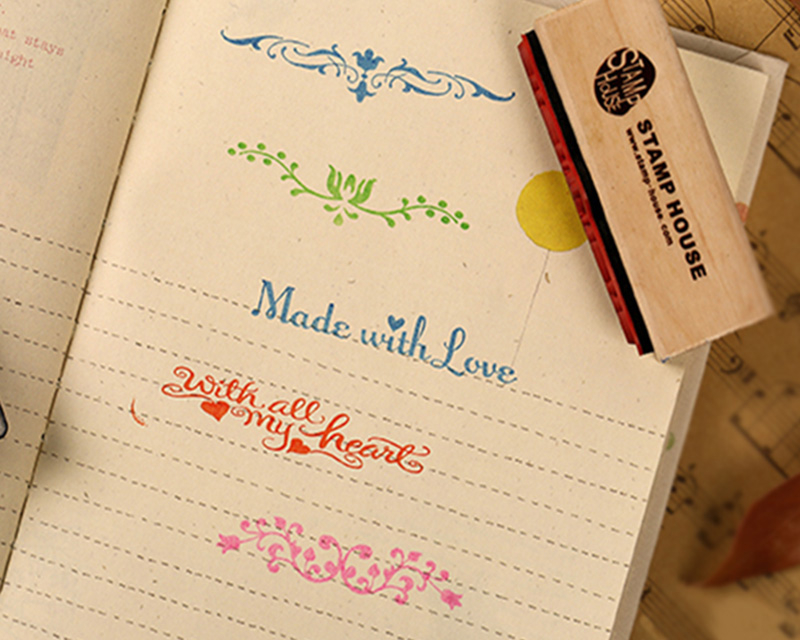 at stays
alight
STAMP
House
STAMP HOUSE
www.stamp-house.com
Made with Love
With all
my heart